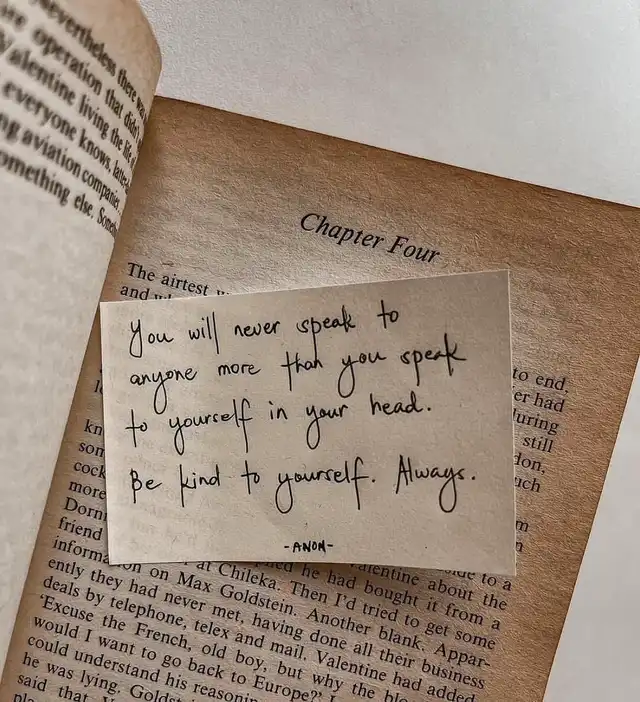 Nevertheless there was
operation that didn't
Valentine living the life of
everyone knows,
aviation companies
something else.
Chapter Four
The airtest
and
You will never speak to
anyone more than you speak
to yourself in your head.
Be kind to yourself. Always.
-ANON-
to end,
had
during
still
more
friend
to a
Valentine about the
at Chileka. he had bought it from a
information on Max Goldstein. Then I'd tried to get some
ently they had never met, Another blank. Appar-
deals by telephone, telex and mail. having done all their business
'Excuse the French, old boy, but why the Valentine had added,
would I want to go back to Europe?'
could understand his
he was lying.
said that